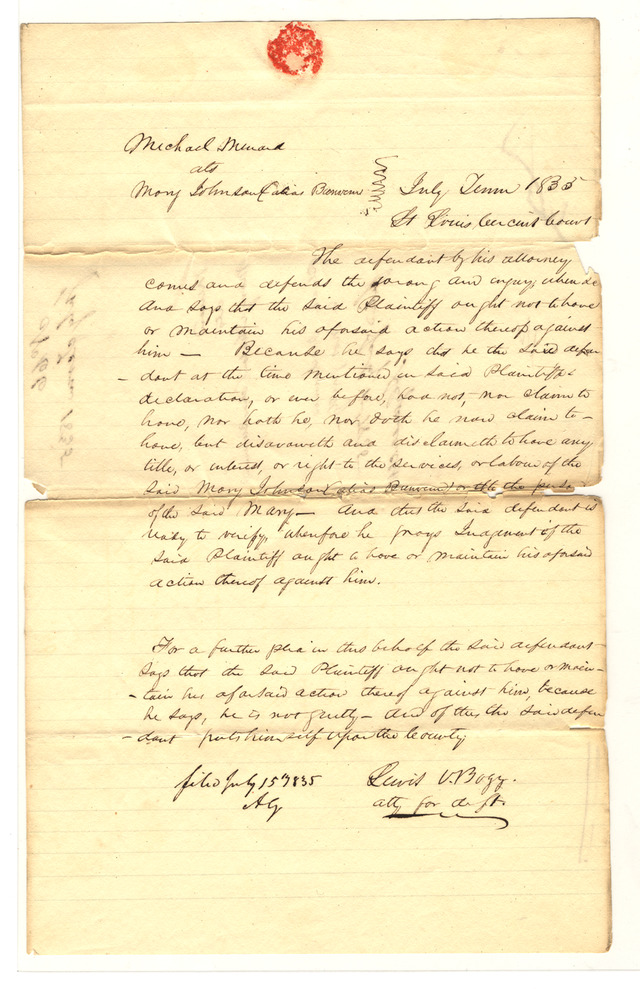 Michael Menard
ats
Mary Johnson (alias Bienvenu
July Term 1835
St Louis Circuit Court
The defendant by his attorney
comes and defends the wrong and injury, when &c
And says that the said Plaintiff ought not to have
or maintain his aforsaid action thereof against
him — Because he says that he the said defen-
-dant at the time mentioned in said Plaintiffs
declaration, or ever before, had not, nor claim to
have, nor hath he, nor doth he now claim to
have, but disavoweth and disclaimeth to have any
title, or interest, or right to the services, or labour of the
said Mary Johnson (alias Bienvenu) or to the person
of the said Mary — And that the said defendant is
ready to verify, wherefore he prays Judgment if the
said Plaintiff ought to have or maintain his aforsaid
action thereof against him.
For a further plea in this behalf the said defendant
says that the said Plaintiff ought not to have or main-
-tain his aforsaid action thereof against him, because
he says, he is not guilty — And of this the said defen
-dant puts himself upon the County
filed July 15 1835
AG
Lewis V. Bogy.
atty for deft.